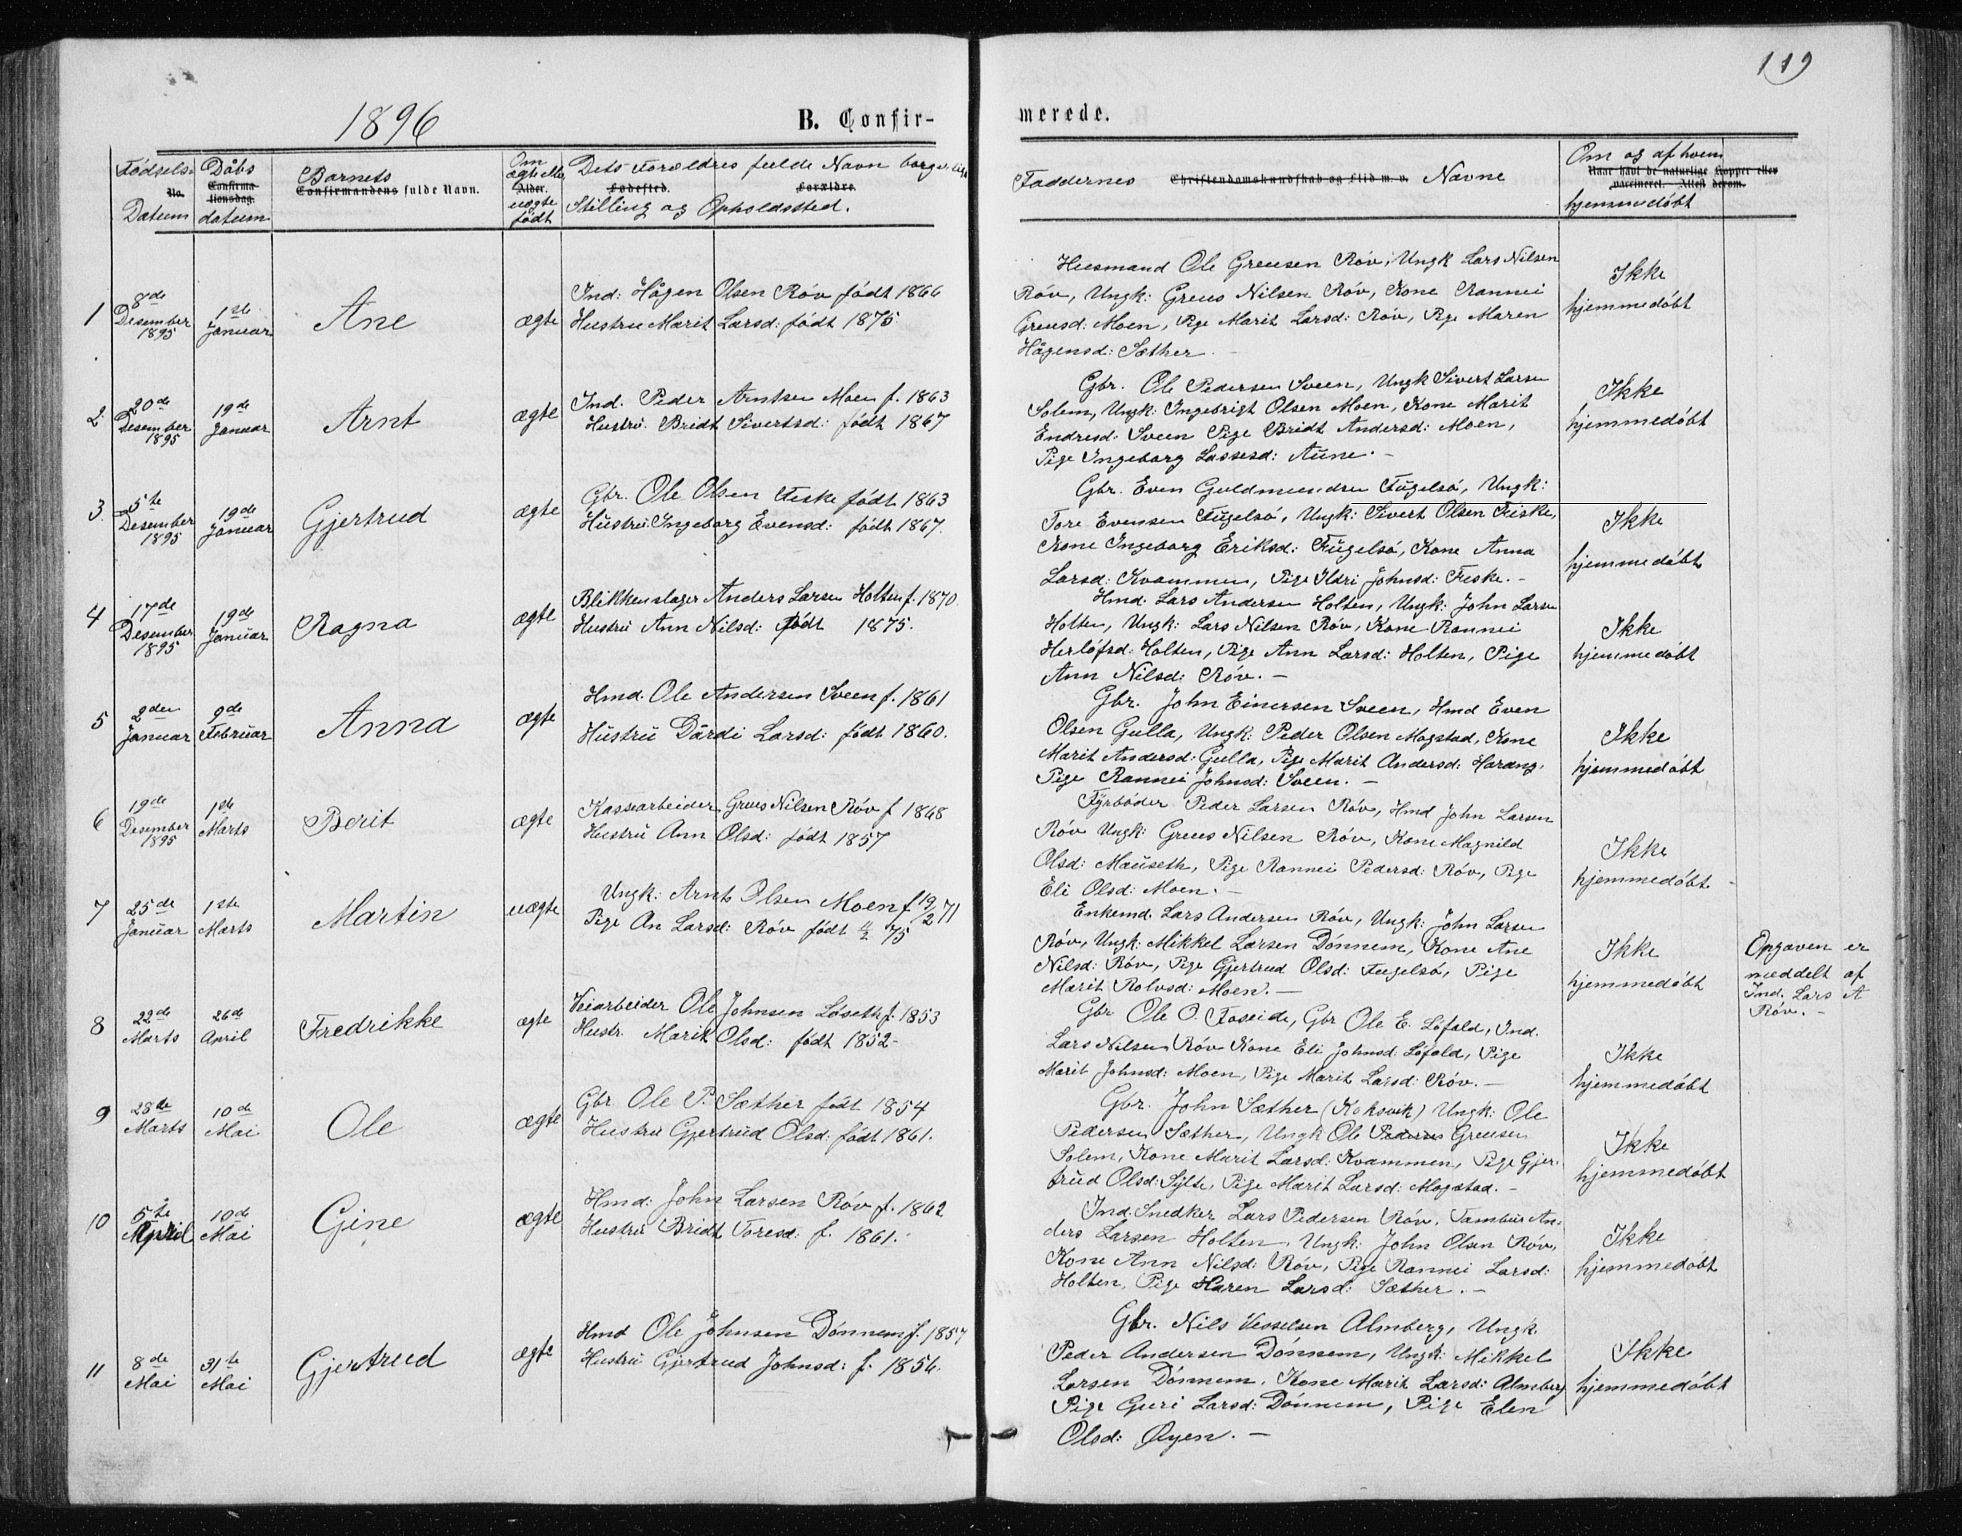 119
1896
B. Confir-
merede.
Fødsels
No.
Datum
Dåbs
Confirma-
tionsdag.
datum
Barnets
Confirmandens fulde Navn.
Om
ægte eller
Alder.
uægte
født
Dets Forældres fulde Navn borgerlige
Fødested. Forældre.
Stilling og Opholdssted.
Faddernes Christendomskundskab og Flid m. v. Navne
Om og af hvem
Naar havt de naturlige Kopper eller
vaccineret. Attest derom.
hjemmedøbt
1
8de
Desember
1895
1ste
Januar
Ane
ægte
Ind: Hågen Olsen Røv født 1866
Hustru Marit Larsd: født 1875
Husmand Ole Greusen Røv, Ungk Lars Nilsen
Røv, Ungk: Greus Nilsen Røv, Kone Rannei
Greusd: Moen, Pige Marit Larsd: Røv, Pge Maren
Hågensd: Sæther.
Ikke
hjemmedøbt
2
20de
Desember
1895
19de
Januar
Arnt
ægte
Ind. Peder Arntsen Moen f. 1863
Hustru. Bridt Sivertsd: født 1867
Gbr. Ole Pedersen Sveen, Ungk Sivert Larsen
Solem, Ungk: Ingebrigt Olsen Moen, Kone Marit
Endresd: Sveen Pige Bridt Andersd: Moen,
Pige Ingeborg Lassesd: Aune. -
Ikke
hjemmedøbt
3.
5te
Desember
1895
19de
Januar
Gjertrud
ægte
Gbr. Ole Olsen Fiske født 1863
Hustru: Ingeborg Evensd: født 1867.
Gbr. Even Guldmundsen Fugelsø, Ungk:
Tore Evensen Fugelsø, Ungk: Sivert Olsen Fiske,
Kone Ingeborg Eriksd: Fugelsø, Kone Anna
Larsd: Kvammen, Pige Ildri Johnsd: Fiske. -
Ikke
hjemmedøbt
4
17de
Desember
1895
19de
Januar
Ragna
ægte
Blikkenslager Anders Larsen Holten f. 1870
Hustru Ann Nilsd: født 1875.
Hmd. Lars Andersen Holten, Ungk: John Larsen
Holten, Ungk: Lars Nilsen Røv, Kone Rannei
Herløfsd: Holten, Pige Ann Larsd: Holten, Pige
Ann Nilsd: Røv. -
Ikke
hjemmedøbt
5
2den
Januar
9de
Februar
Anna
ægte
Hmd. Ole Andersen Sveen f. 1861
Hustru Dårdi Larsd: født 1860.
Gbr. John Einersen Sveen, Hmd Even
Olsen Gulla, Ungk: Peder Olsen Mogstad, Kone
Marit Andersd: Gulla, Pige Marit Andersd: Harang.
Pige Rannei Johnsd: Sveen. -
Ikke
hjemmedøbt
6
19de
Desember
1895
1ste
Marts
Berit
ægte
Kassearbeider Greus Nilsen Røv f 1868
Hustru Ann Olsd: født 1857
Fyrbøder Peder Larsen Røv, Hmd John Larsen
Røv Ungk: Greus Nilsen Røv, Kone Magnild
Olsd: Mauseth, Pige Rannei Pedersd: Røv, Pge
Eli Olsd: Moen. -
Ikke
hjemmedøbt
7
25de
Januar
1ste
Marts
Martin
uægte
Ungk: Arnt Olsen Moen f 19/2 71
Pige An Larsd: Røv født 75
Enkemd. Lars Andersen Røv, Ungk: John Larsen
Røv, Ungk: Mikkel Larsen Dønnem, Kone Ane
Nilsd: Røv, Pge Gjertrud Olsd: Fugelsø, Pige
Marit Rolvsd: Moen. -
Ikke
hjemmedøbt
Opgaven er
meddelt af
Ind. Lars A
Røv. -
8
22de
Marts
26de
April
Fredrikke
ægte
Veiarbeider Ole Johnsen Løseth f. 1853
Hustr. Marit Olsd: født 1852-
Gbr Ole O. Roseide, Gbr Ole E. Løfald, Ind.
Lars Nilsen Røv Kone Eli Johnsd: Løfald, Pige
Marit Johnsd: Moen, Pige Marit Larsd: Røv. -
Ikke
hjemmedøbt
9
28de
Marts
10de
Mai
Ole
ægte
Gbr Ole P. Sæther født 1854
Hustru Gjertrud Olsd: født 1861.
Gbr. John Sæther (Koksvik) Ungk: Ole
Pedersen Sæther, Ungk Ole Pedersen Greusen
Solem, Kone Marit Larsd: Kvammen, Pige Gjer-
trud Olsd: Sylte, Pige Marit Larsd: Mogstad. -
Ikke
hjemmedøbt
10
5te
April
10de
Mai
Gine
ægte
Hmd: John Larsen Røv f. 1862
Hustru Bridt Toresd: f. 1861.
Ind. Snedker Lars Pedersen Røv, Tambur An-
ders Larsen Holten, Ungk: John Olsen Røv,
Kone Ann Nilsd: Røv, Pige Rannei Larsd:
Holten, Pige Karen Larsd: Sæther. -
Ikke
hjemmedøbt
11
8de
Mai
31te
Mai
Gjertrud
ægte
Hmd Ole Johnsen Dønnem f. 1857
Hustru Gjertrud Johnsd: f. 1856.
Gbr. Nils Vesselsen Almberg, Ungk.
Peder Andersen Dønnem, Ungk: Mikkel
Larsen Dønnem, Kone Marit Larsd: Almberg
Pige Guri Larsd: Dønnem, Pige Elen
Olsd: Øyen. -
Ikke
hjemmedøbt